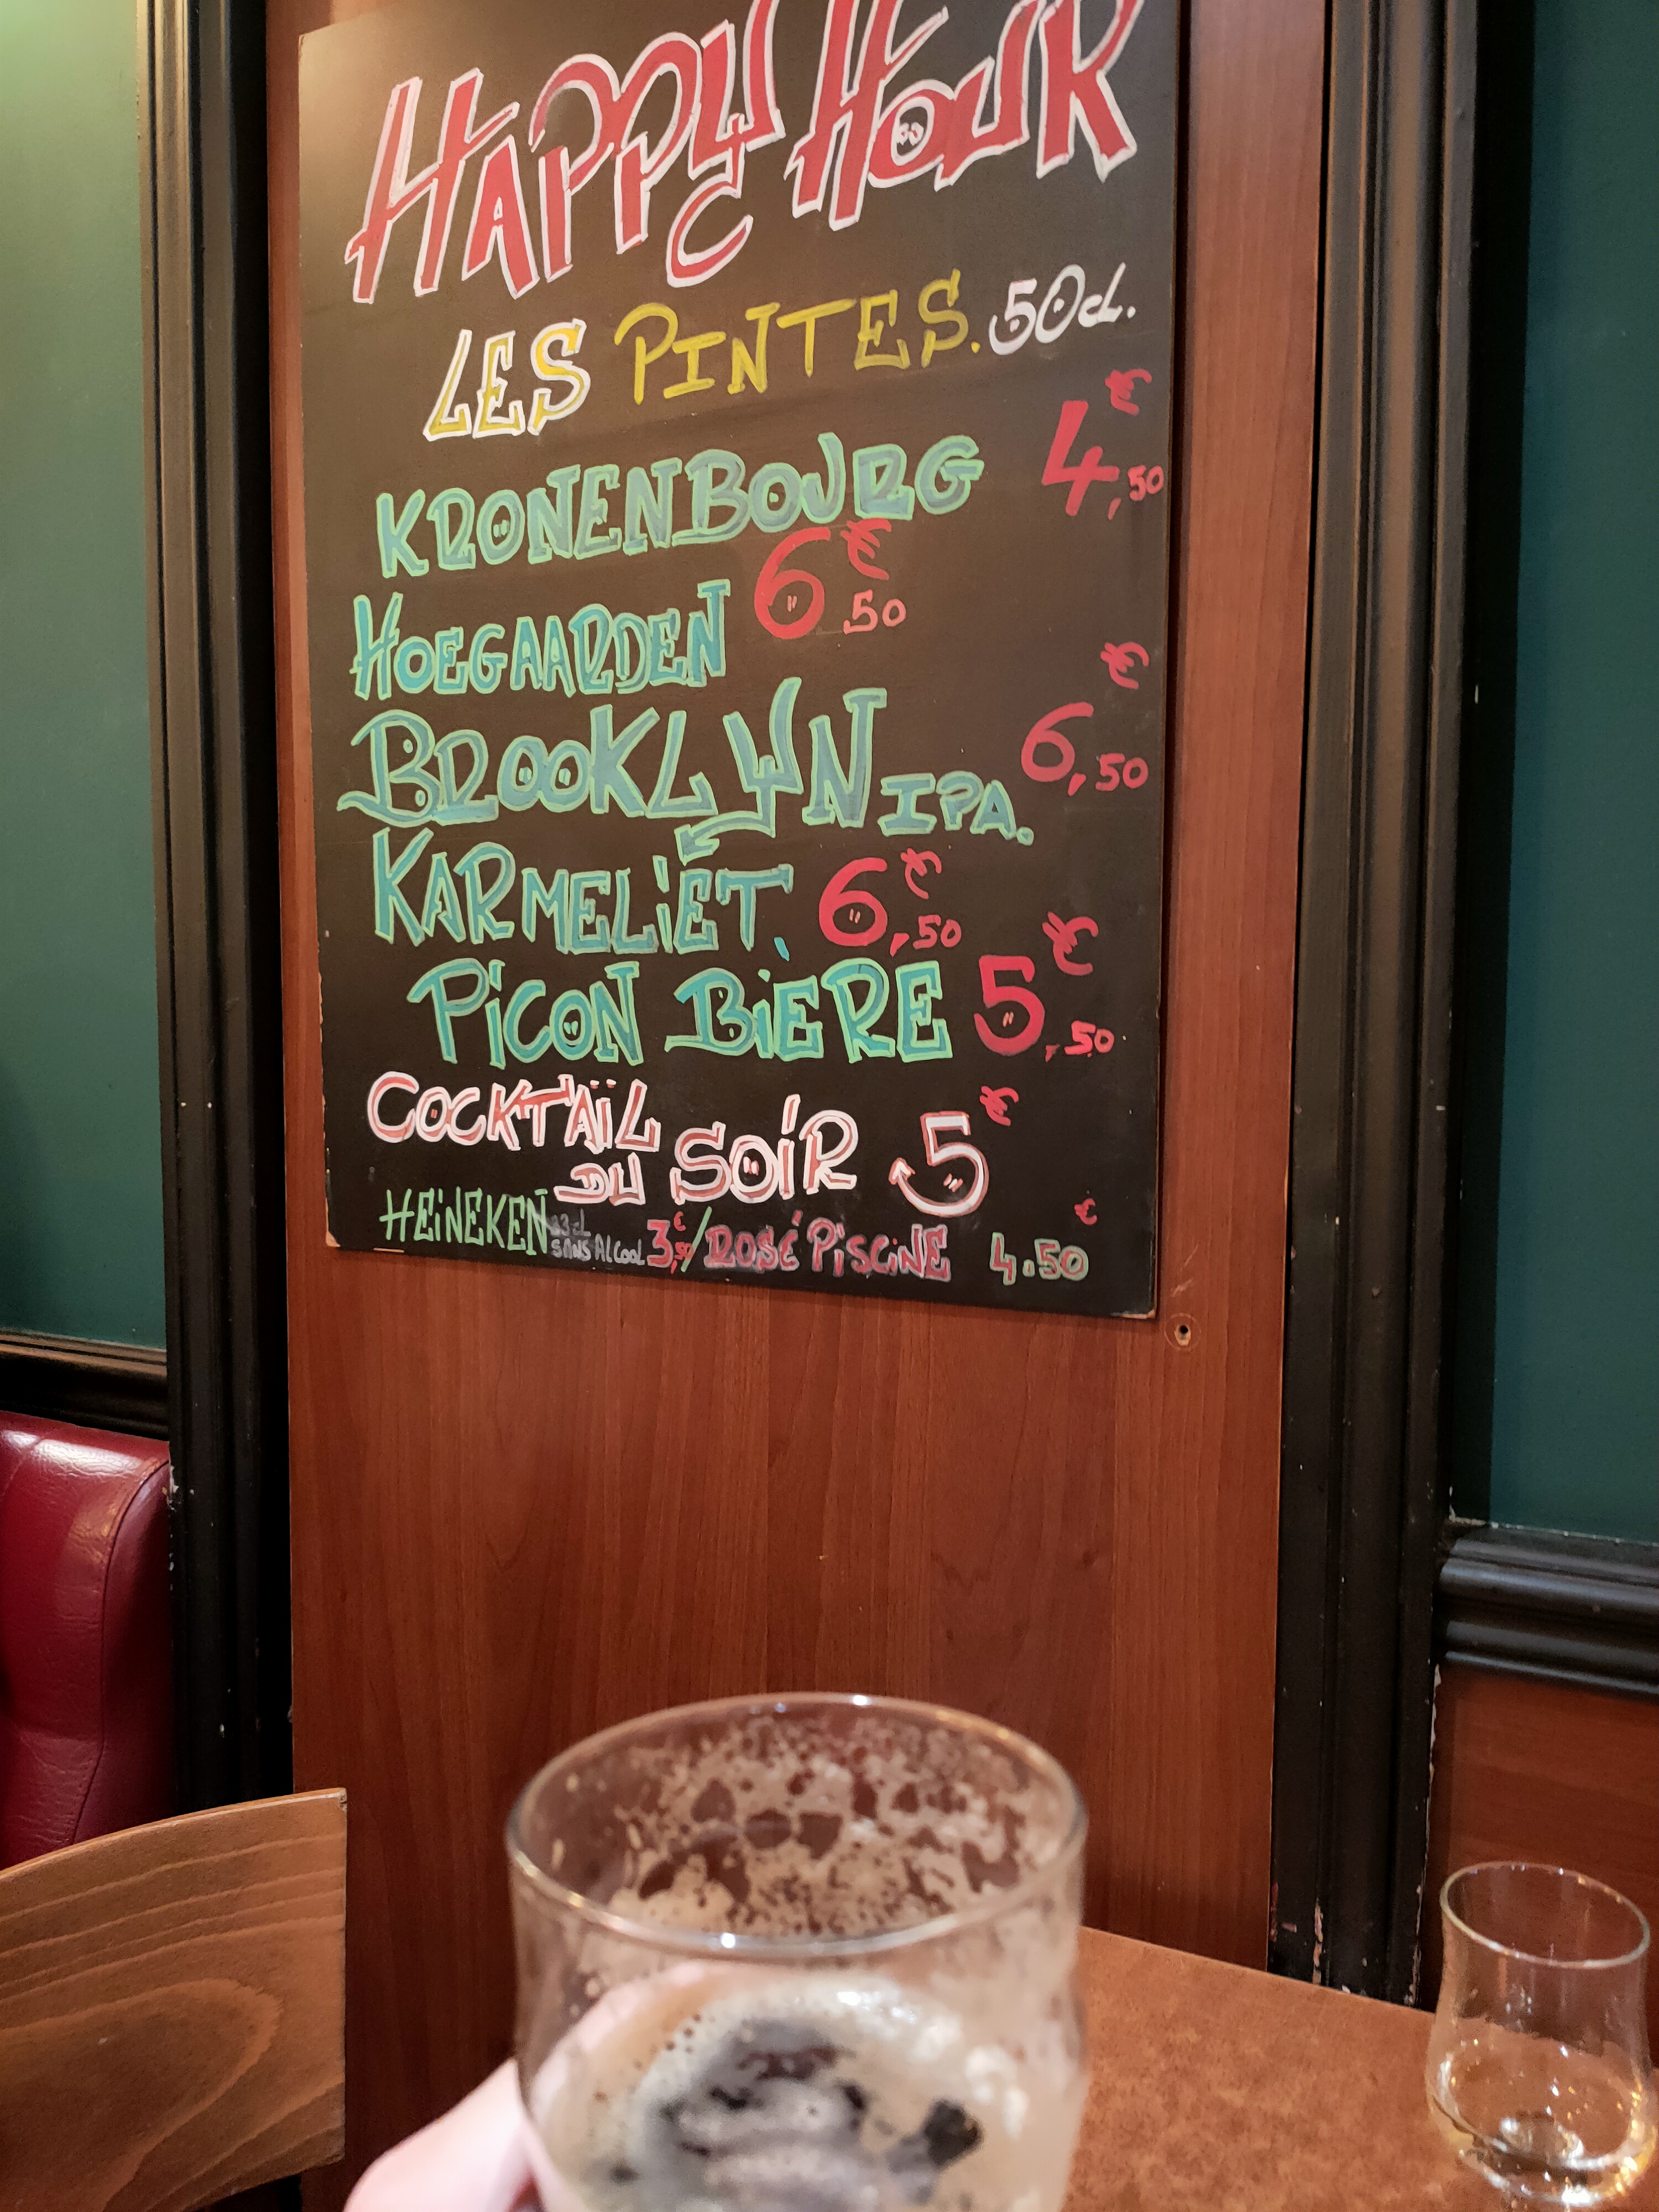 HAPPY HOUR
LES PINTES. 50cl.
KRONENBOURG 4€,50
HOEGAARDEN 6€.50
BROOKLYN IPA. 6€,50
KARMELIET. 6€,50
PICON BIERE 5€,50
COCKTAÏL DU SOIR 5€
HEINEKEN 33cl SANS ALCOOL 3€,50 / ROSÉ PISCINE 4.50€